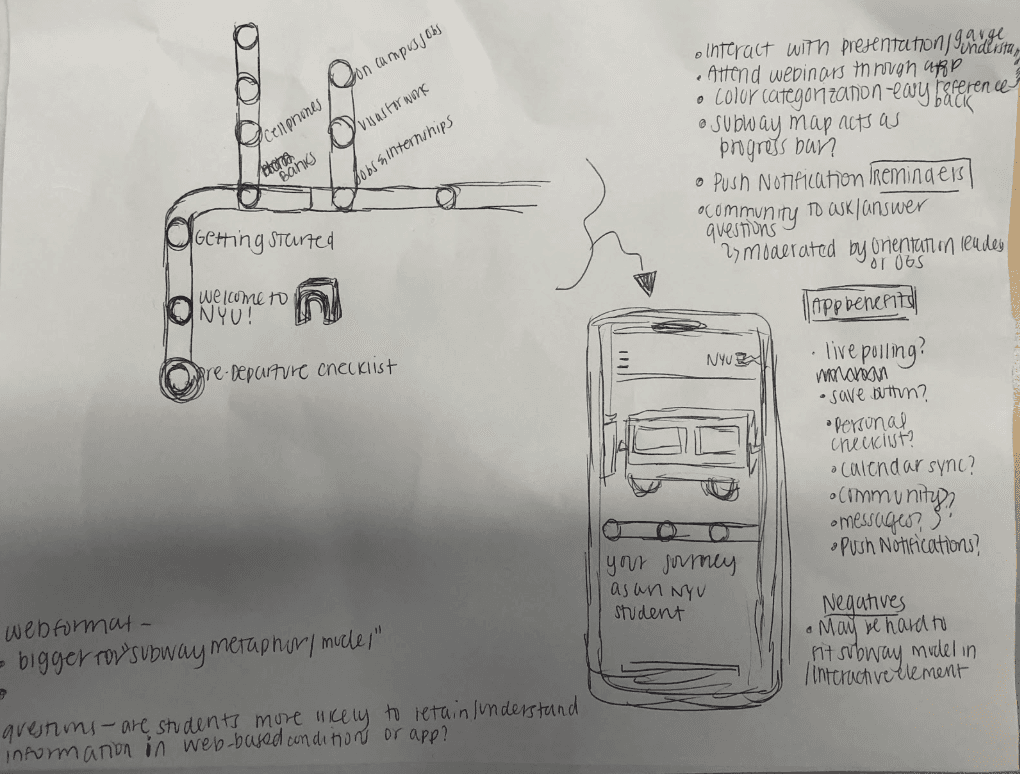 on campus jobs
cellphones
visas for work
Banks
jobs & internships
Getting started
welcome to
NYU!
Pre-Departure checklist
• Interact with presentation/gauge
understanding
• Attend webinars through app
• color categorization - easy reference
back
• subway map acts as
progress bar?
• Push Notification Reminders
• community to ask/answer
questions
↳ moderated by orientation leader
or OGS
App benefits
• live polling?
• save button?
• Personal
checklist?
• calendar sync?
• community?
• messages?
• Push Notifications?
NYU
your journey
as an NYU
student
Negatives
• May be hard to
fit subway model in
/interactive element
web format -
• bigger for "subway metaphor/model"
•
questions - are students more likely to retain/understand
information in web-based conditions or app?